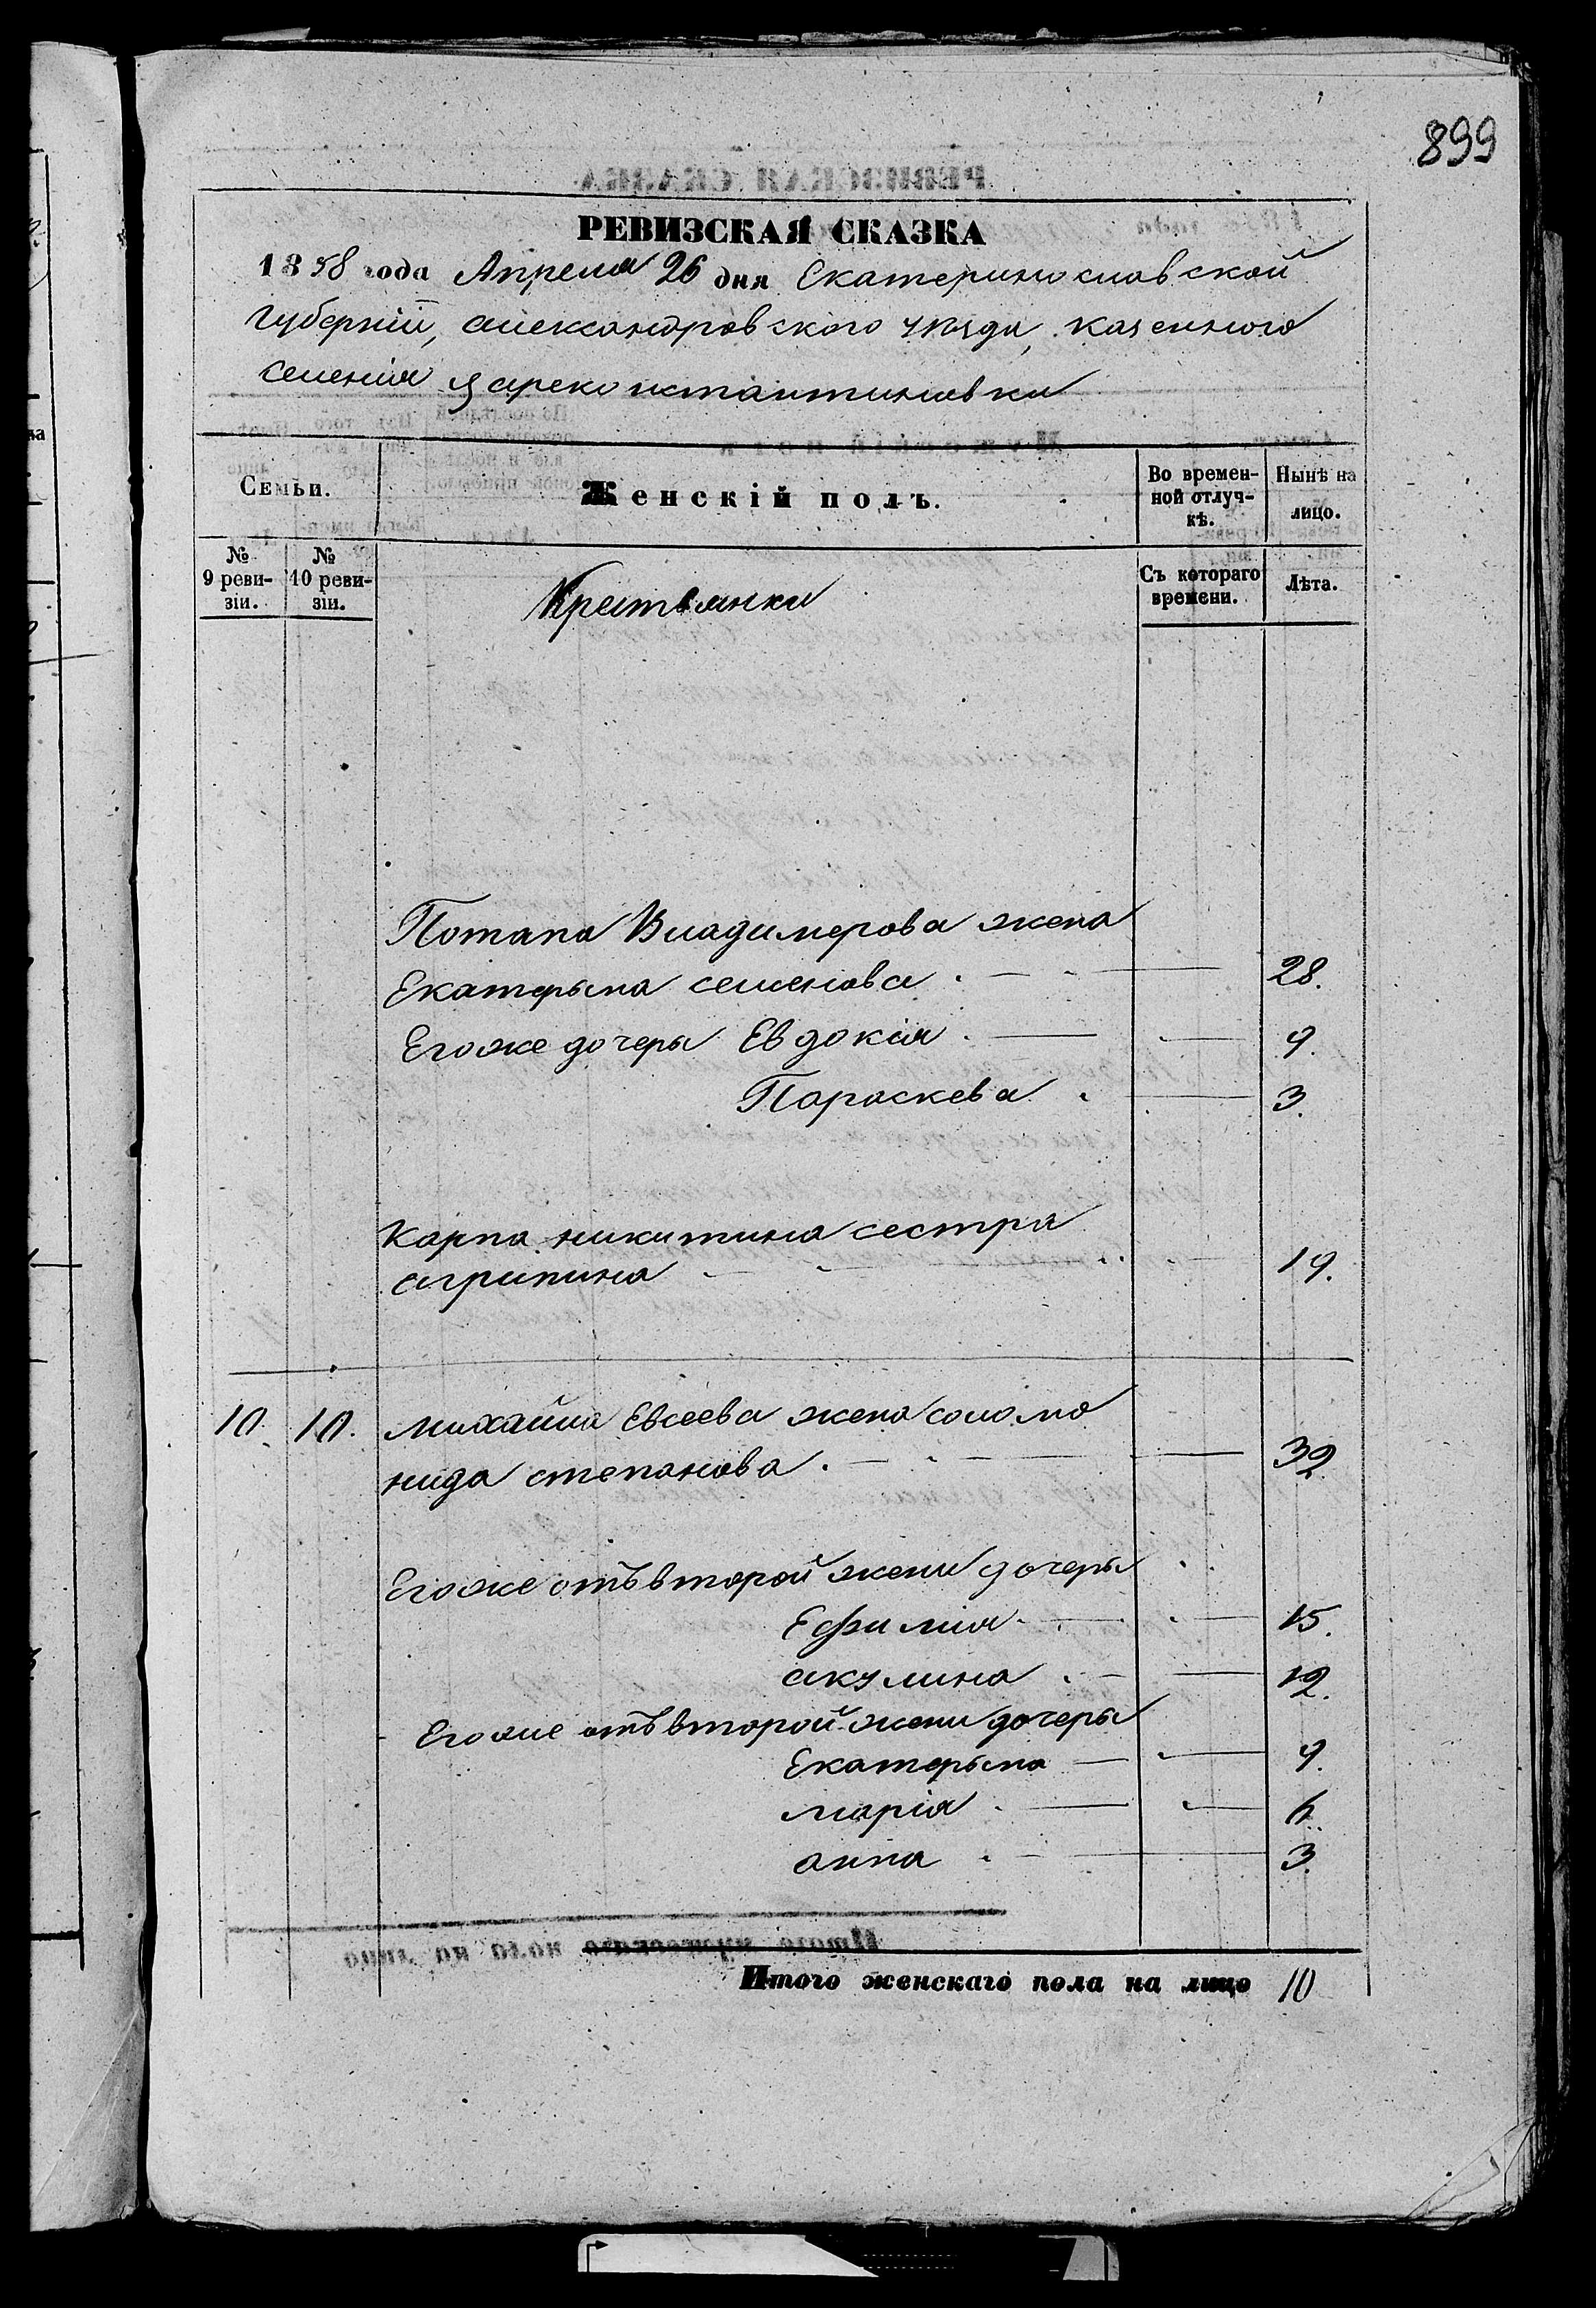 899
РЕВИЗСКАЯ СКАЗКА
1858 года Апреля 26 дня Екатеринославской
Губерніи, александровского уѣзда, казенного
селенія Цареконстантиновки
Семьи. Женскій полъ. Во времен-ной отлуч-кѣ. Нынѣ на лицо.
№ 9 реви-зіи. № 10 реви-зіи. Съ котораго времени. Лѣта.
Крестьянки
Потапа Владимерова жена
Екатерына семенова 28.
Егоже дочеры Евдокія 9.
Параскева 3.
Карпа никитина сестра
агрипина 19.
10. 10. михайла Евсеева жена соломо
нида степанова 32
Егоже отъ второй жени дочеры
Ефимія 15.
акулина 12.
Егоже отъ второй жени дочеры
Екатерына 9.
марія 6.
анна 3.
Итого женскаго пола на лицо 10